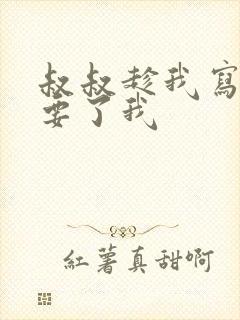 叔叔趁我寫
要了我
紅薯真甜啊